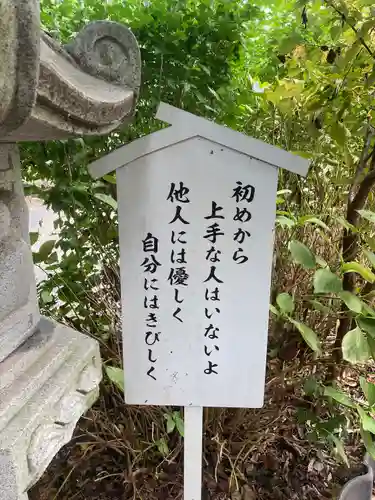 初めから
上手な人はいないよ
他人には優しく
自分にはきびしく